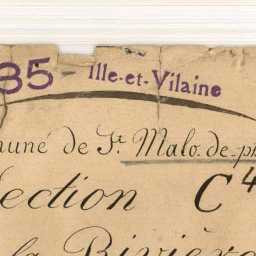 35 - Ille-et-Vilaine
muné de St. Malo-de-ph
ection C4
la Rivière